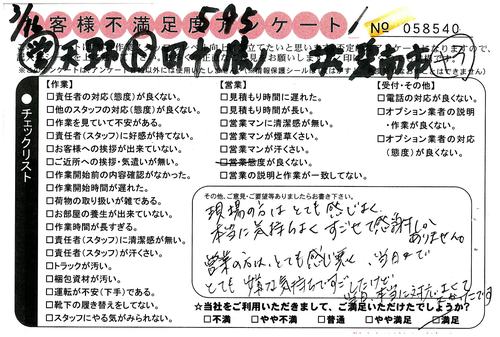 3/16
595
お客様不満足度アンケート
No 058540
チェックリスト
【作業】
□責任者の対応(態度)が良くない。
□他のスタッフの対応(態度)が良くない。
□作業を見ていて不安がある。
□責任者(スタッフ)に好感が持てない。
□お客様への挨拶が出来ていない。
□ご近所への挨拶・気遣いが無い。
□作業開始前の内容確認がなかった。
□作業開始時間が遅れた。
□荷物の取り扱いが雑である。
□お部屋の養生が出来ていない。
□作業時間が長すぎる。
□責任者(スタッフ)に清潔感が無い。
□責任者(スタッフ)が汗くさい。
□トラックが汚い。
□梱包資材が汚い。
□運転が不安(下手)である。
□靴下の履き替えをしてない。
□スタッフにやる気がみられない。
【営業】
□見積もり時間に遅れた。
□見積もり時間が長い。
□営業マンに清潔感が無い。
□営業マンが煙草くさい。
□営業マンが汗くさい。
□営業態度が良くない。
□営業の説明と作業が一致してない。
【受付・その他】
・電話の対応が良くない。
□オプション業者の説明
・作業が良くない。
□オプション業者の対応
(態度)が良くない。
その他、ご意見・ご要望等ありましたらお書き下さい。
現場の方はとても感じよく、
本当に気持ちよくすごせて感謝しか
ありません。
営業の方は、とても感じ悪く、当日まで
とても嫌な気持ちですごしたけど、
当日、本当に対応よくて
よかったです
☆当社をご利用いただきまして、ご満足いただけたでしょうか?
□不満 □やや不満 □普通 □やや満足 □満足